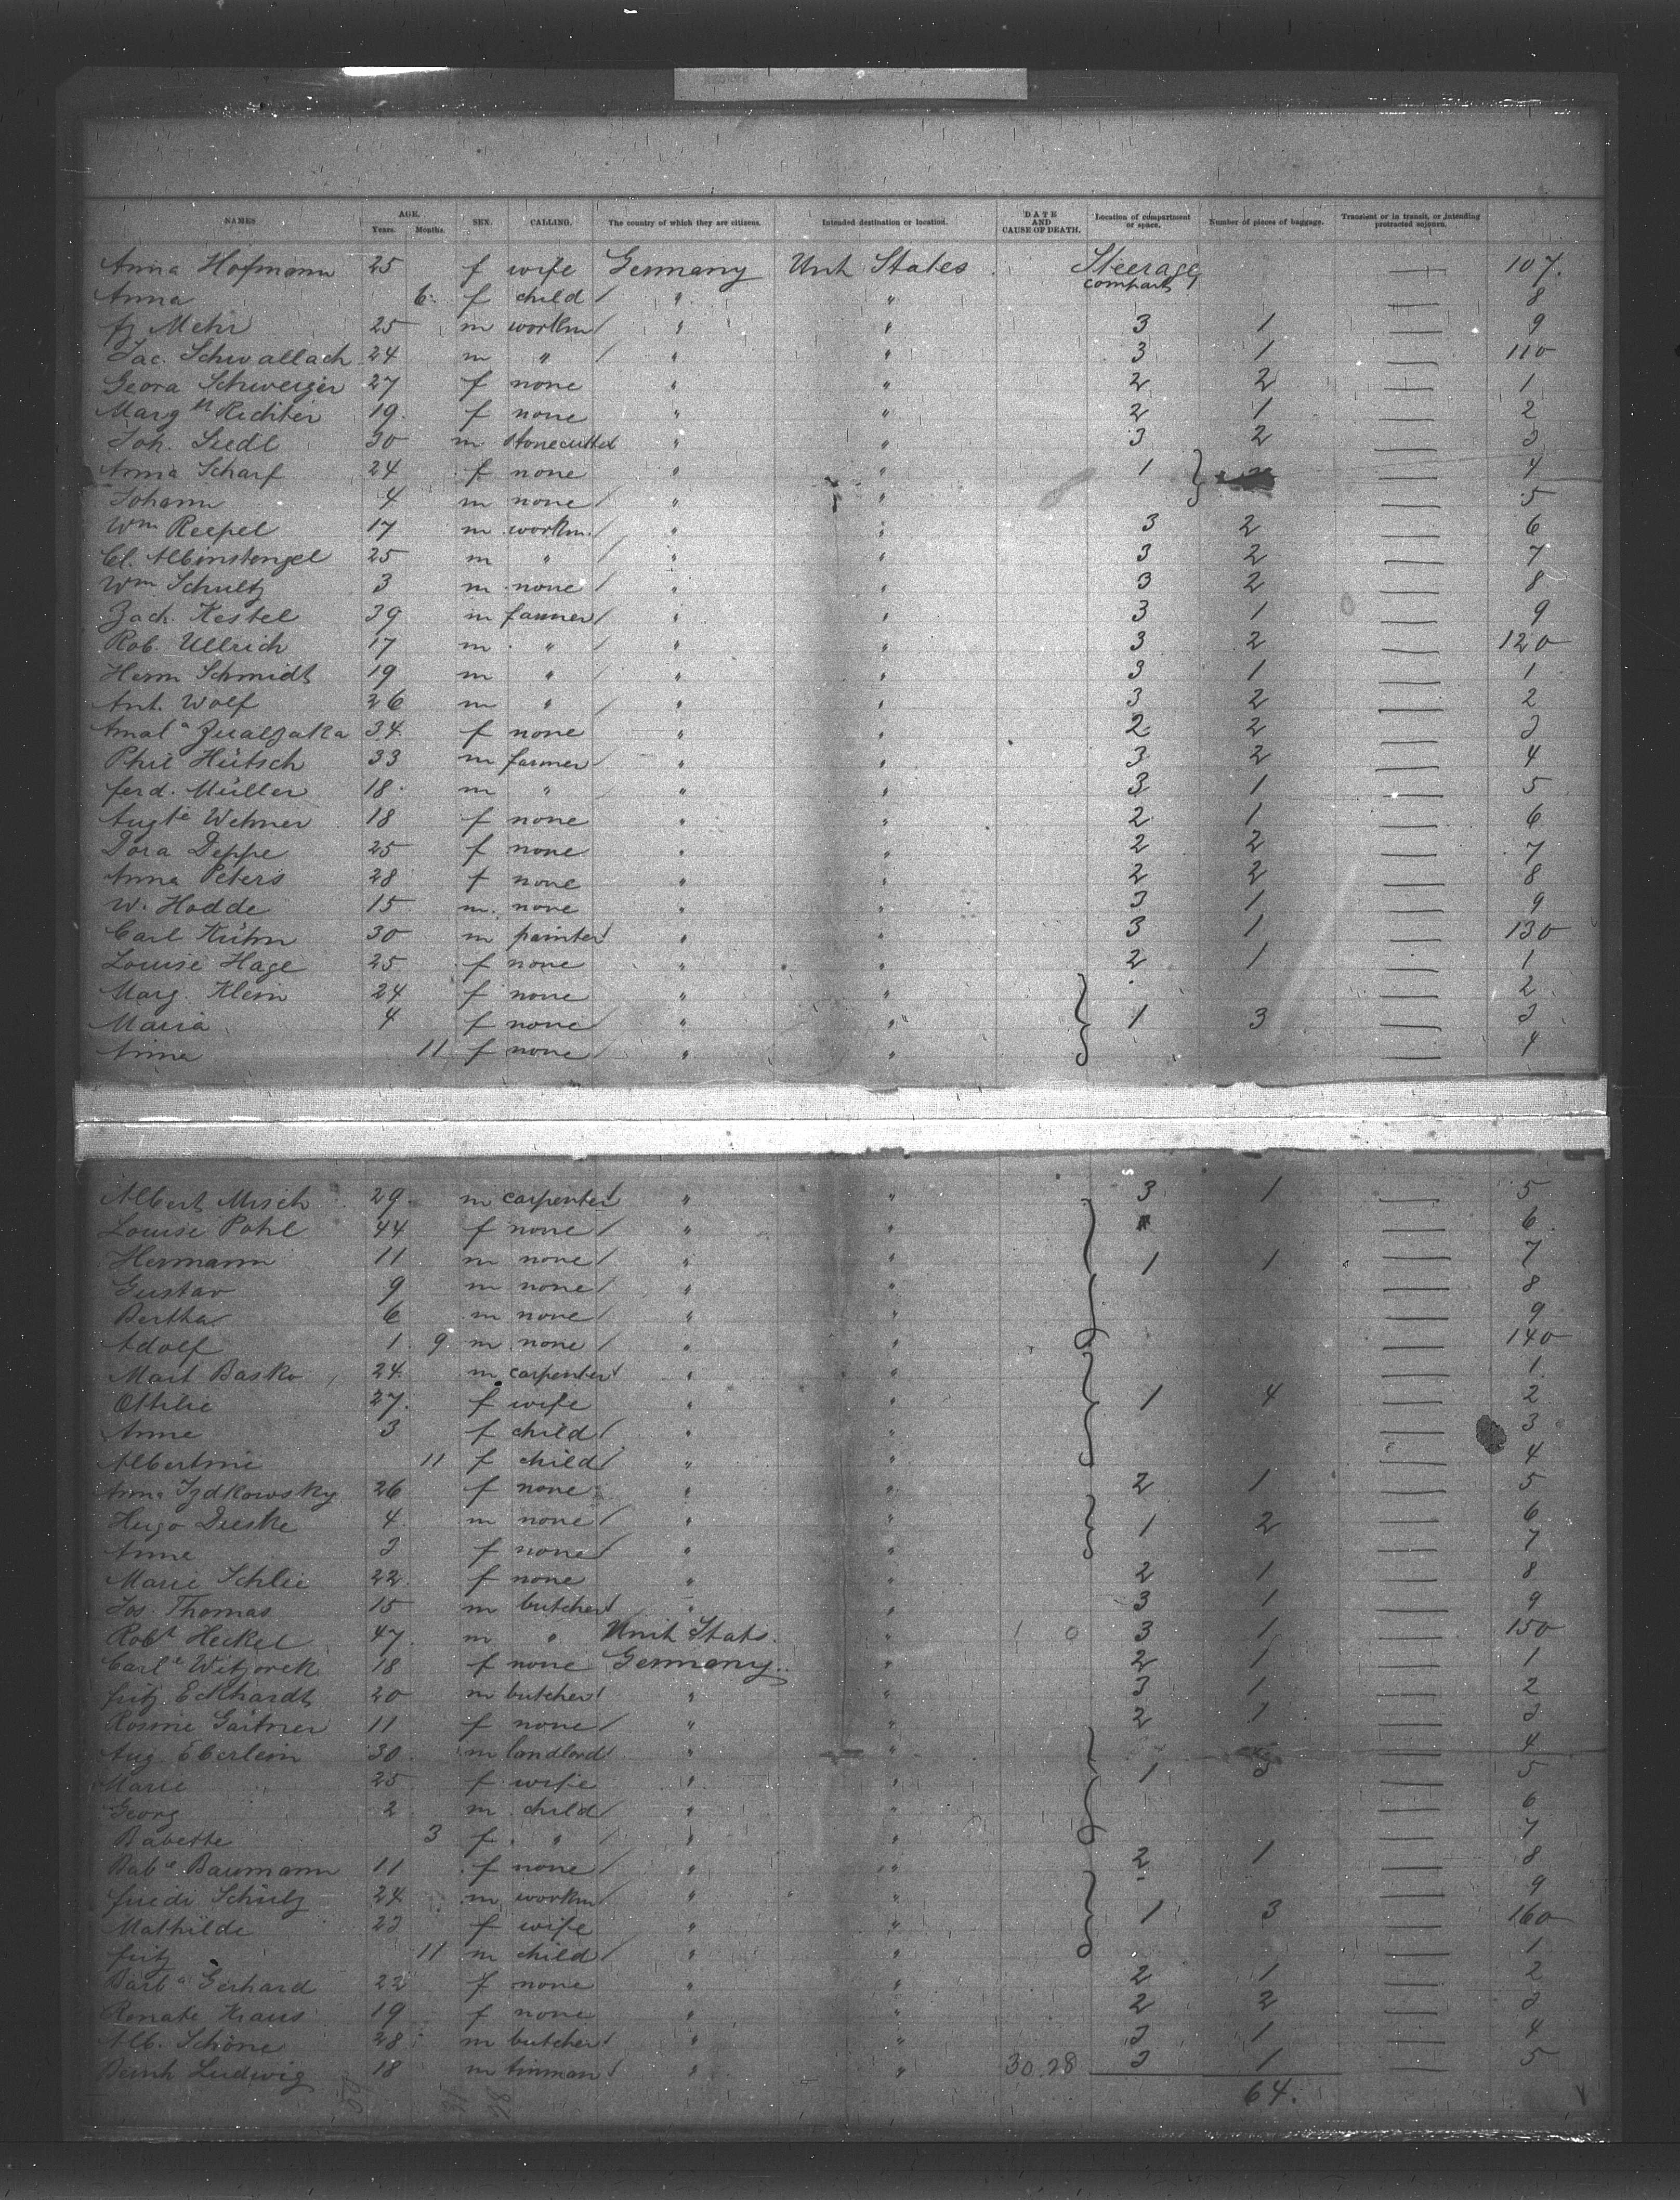 NAMES. AGE. Years. Months. SEX. CALLING. The country of which they are citizens. Intended destination or location. DATE AND CAUSE OF DEATH. Location of compartment or space. Number of pieces of baggage. Transient or in transit, or intending protracted sojourn.
Anna Hofmann 25 f wife Germany Unit States Steerage compart 1 — 107.
Anna 6 f child / " " — 8
fz Mehr 25 m workm / " " 3 1 — 9
Jac. Schwallach 24 m " / " " 3 1 — 110
Geora Schweiger 27 f none " " 2 2 — 1
Marg Richter 19. f none " " 2 1 — 2
Joh. Seedl 30 m stonecutter " " 3 2 — 3
Anna Scharf 24 f none " " 1 — 4
Johann 4 m none / " " — 5
Wm Reepel 17 m workm. / " " 3 2 — 6
Cl. Albinstengel 25 m " / " " 3 2 — 7
Wm Schultz 3 m none / " " 3 2 — 8
Zach. Kestel 39 m farmer / " " 3 1 — 9
Rob. Ullrich 17 m " / " " 3 2 — 120
Herm Schmidt 19 m " / " " 3 1 — 1
Ant. Wolf 26 m " / " " 3 2 — 2
Amal a 34 f none " " 2 2 — 3
Phil Hütsch 33 m farmer / " " 3 2 — 4
ferd. Müller 18 m " / " " 3 1 — 5
Augte Wehner 18 f none " " 2 1 — 6
Dora Deppe 25 f none " " 2 2 — 7
Anna Peters 28 f none " " 2 2 — 8
W. Hodde 15 m. none " " 3 1 — 9
Carl Kühn 30 m painter / " " 3 1 — 130
Louise Hage 25 f none " " 2 1 — 1
Marg. Klein 24 f none " " — 2
Maria 4 f none / " " 1 3 — 3
Anna 11 f none / " " — 4
Albert Misch 29 m carpenter / " " 3 1 — 5
Louise Pohl 44 f none / " " — 6
Hermann 11 m none / " " 1 1 — 7
Gustav 9 m none / " " — 8
Bertha 6 m none / " " — 9
Adolf 1 9 m none / " " — 140
Mart Basko 24 m carpenter / " " — 1
Ottilie 27. f wife " " 1 4 — 2
Anne 3 f child / " " — 3
Albertine 11 f child / " " — 4
Anna Izdkowsky 26 f none " " 2 1 — 5
Hugo Deeske 4 m none / " " 1 2 — 6
Anne 3 f none / " " — 7
Marie Schlie 22 f none " " 2 1 — 8
Jos. Thomas 15 m butcher / " " 3 1 — 9
Robt Heckel 47 m " Unit Stats. " 3 1 — 150
Carle Witzorek 18 f none Germany " 2 1 — 1
fritz Eckhardt 20 m butcher / " " 3 1 — 2
Rosine Gärtner 11 f none / " " 2 1 — 3
Aug. Eberlein 30 m landlord / " " — 4
Marie 25 f wife " " 1 3 — 5
Georg 2 m child / " " — 6
Babette 3 f " / " " — 7
Bab e Baumann 11 f none / " " 2 1 — 8
friedr Schulz 24 m workm / " " — 9
Mathilde 23 f wife " " 1 3 — 160
fritz 11 m child / " " — 1
Barba Gerhard 22 f none " " 2 1 — 2
Renate Kraus 19 f none " " 2 2 — 3
Alb. Schöne 28 m butcher / " " 3 1 — 4
Bernh Ludwig 18 m tinman / " " 30.28 3 1 — 5
64.